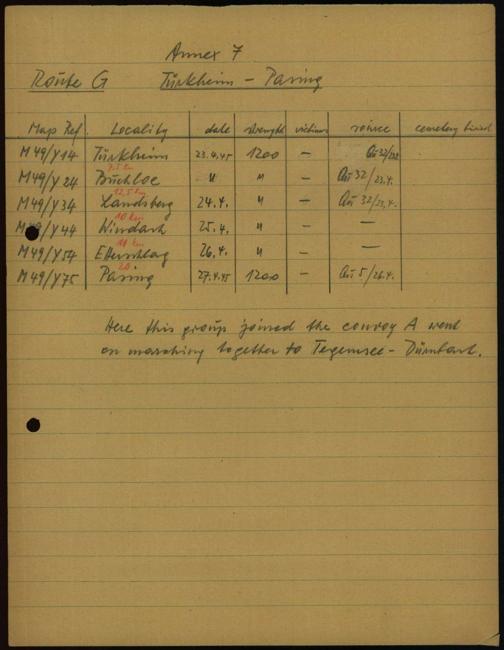 Annex 7
Route G Türkheim - Pasing
Map Ref. Locality date strength victims source cemetery buried
M49/Y14 Türkheim 23.4.45 1200 — Qu 32/23.4.
7,5 km
M49/Y24 Buchloe " " — Qu 32/23.4.
12,5 km
M49/Y34 Landsberg 24.4. " — Qu 32/23.4.
10 km
M49/Y44 Windach 25.4. " — —
11 km
M49/Y54 Etterschlag 26.4. " — —
20
M49/Y75 Pasing 27.4.45 1200 — Qu 5/26.4.
Here this group joined the convoy A went
on marching together to Tegernsee - Dürnbach.